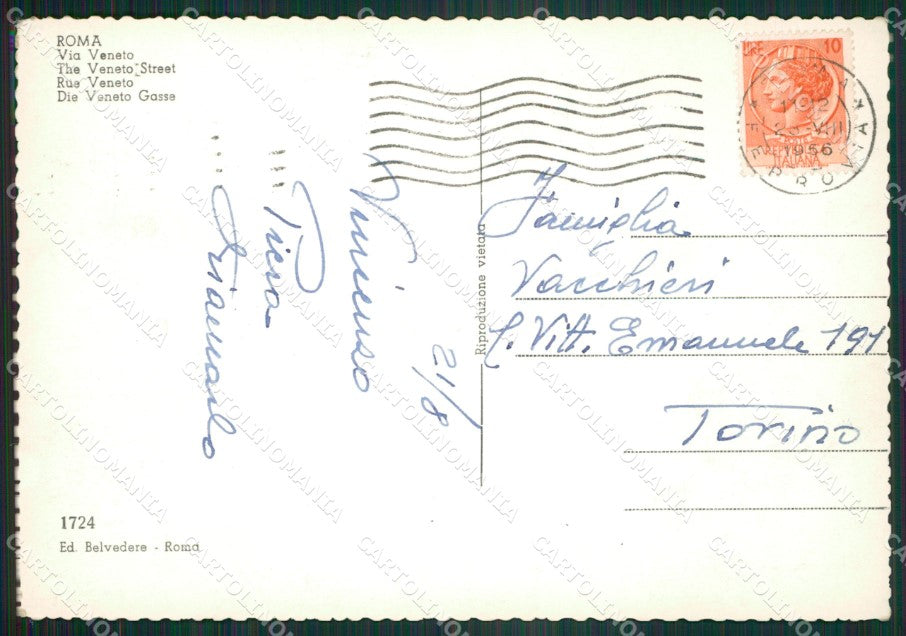 ROMA
Via Veneto
The Veneto Street
Rue Veneto
Die Veneto Gasse
LIRE 10
REPUBBLICA
ITALIANA
1956
FERROVIA
Vincenzo
Piera
GianCarlo
21/8
Riproduzione vietata
Famiglia
Vacchieri
C. Vitt. Emanuele 191
Torino
1724
Ed. Belvedere - Roma
CARTOLINOMANIA